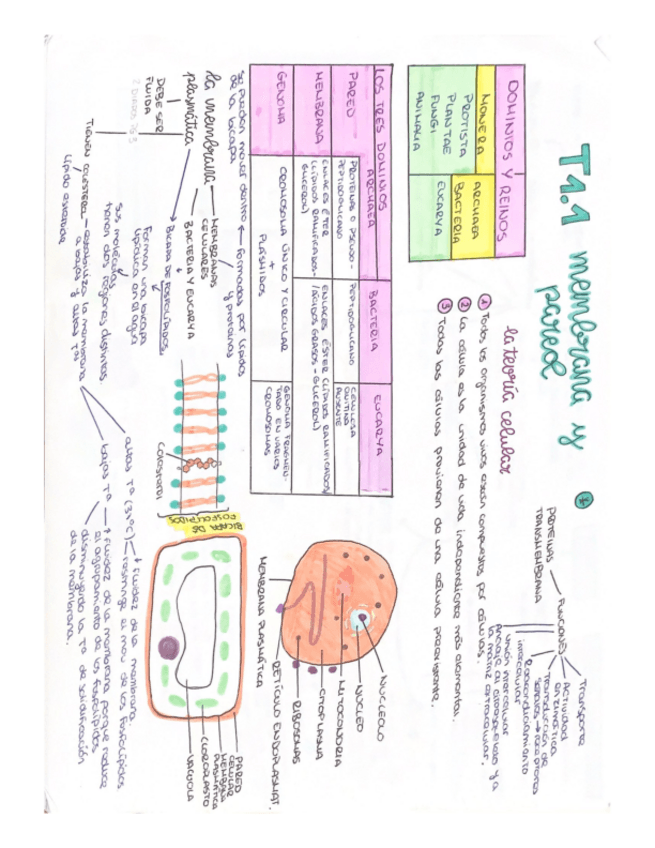 T1.1 membrana y
pared
DOMINIOS Y REINOS
MONERA
ARCHAEA
BACTERIA
PROTISTA
PLANTAE
FUNGI
ANIMALIA
EUCARYA
la teoría celular
1 Todos los organismos vivos están compuestos por células.
2 La célula es la unidad de vida independiente más elemental.
3 Todas las células provienen de una célula preexistente.
*
PROTEÍNAS
TRANSMEMBRANA
FUNCIONES
Transporte
ACTIVIDAD
ENZIMÁTICA
Transducción de
señales → receptores
Reconocimiento
intercelular
Unión intercelular
Anclaje al citoesqueleto y a
la matriz extracelular.
LOS TRES DOMINIOS
ARCHAEA
BACTERIA
EUCARYA
PARED
PROTEÍNAS O PSEUDO-
PEPTIDOGLICANO
PEPTIDOGLICANO
CELULOSA
QUITINA
AUSENTE
MEMBRANA
ENLACES ÉTER
(LÍPIDOS RAMIFICADOS-
GLICEROL)
ENLACES ÉSTER
(ÁCIDOS GRASOS - GLICEROL)
GENOMA
CROMOSOMA ÚNICO Y CIRCULAR
PLÁSMIDOS
GENOMA FRAGMEN-
TADO EN VARIOS
CROMOSOMAS
NUCLEOLO
NÚCLEO
MITOCONDRIA
CITOPLASMA
RIBOSOMAS
RETÍCULO ENDOPLASMAT.
MEMBRANA PLASMÁTICA
la membrana
plasmática
MEMBRANAS
CELULARES
formadas por lípidos
y proteínas
se pueden mover dentro
de la bicapa
BACTERIA Y EUCARYA
BICAPA DE FOSFOLÍPIDOS
Forman una bicapa
lipídica en el agua
Sus moléculas
tienen dos regiones distintas.
DEBE SER
FLUIDA
TIENEN COLESTEROL → estabiliza la membrana
a bajas y altas Tªs
Lípido esteroide
altas Tª (37ºC) → ↓ fluidez de la membrana.
restringe el mov. de los fosfolípidos
bajas Tª → ↑ fluidez de la membrana porque reduce
el agrupamiento de los fosfolípidos
disminuyendo la Tª de solidificación
de la membrana.
COLESTEROL
BICAPA DE
FOSFOLÍPIDOS
PARED
CELULAR
MEMBRANA
PLASMÁTICA
CLOROPLASTO
VACUOLA